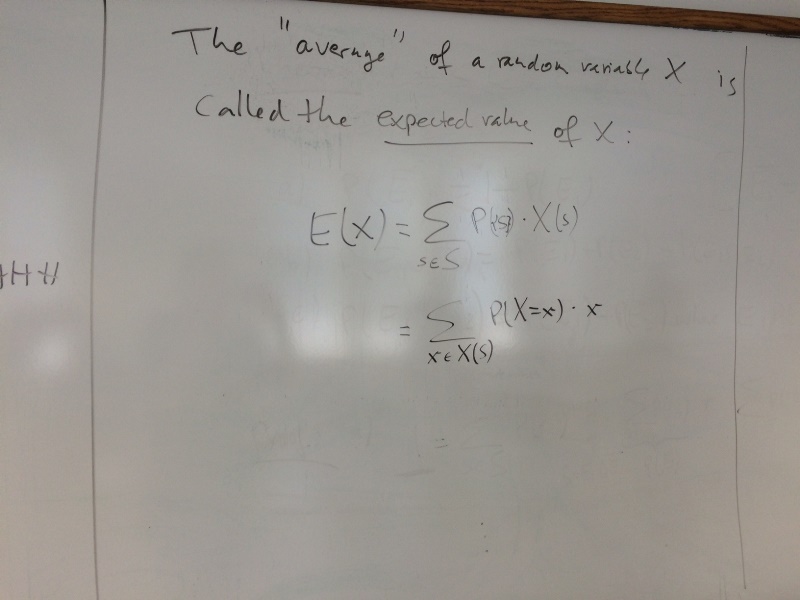 The "average" of a random variable X is
Called the expected value of X:
E(X) = ∑ P({s}) · X(s)
s∈S
= ∑ P(X=x) · x
x∈X(S)
HH